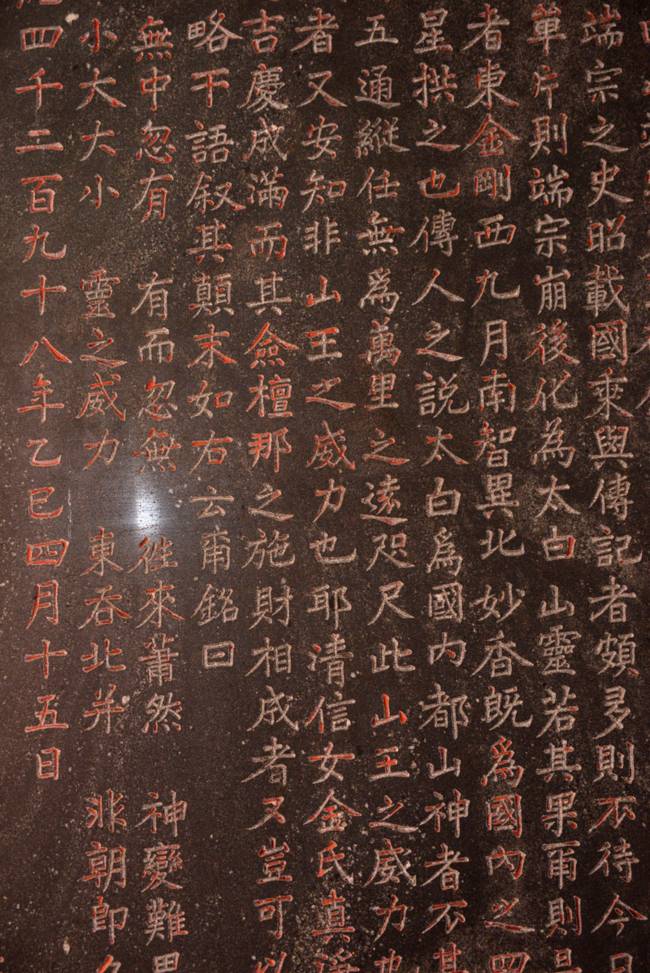 端宗之史昭載國乘與傳記者頗多則不待今日
單片則端宗崩後化為太白山靈若其果爾則是
者東金剛西九月南智異北妙香既爲國內之四
星拱之也傳人之說太白爲國內都山神者不其
五通縱任無爲萬里之遠咫尺此山王之威力也
者又安知非山王之威力也耶清信女金氏真
吉慶成滿而其僉檀那之施財相成者又豈可以
略干語叙其顚末如右云甭銘曰
無中忽有 有而忽無 徃來蕭然 神變難思
小大大小 靈之威力 東吞北并 非朝即
四千二百九十八年乙巳四月十五日